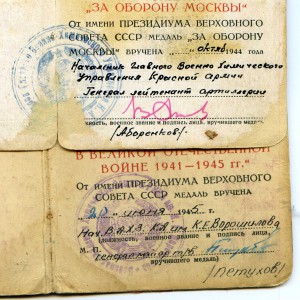 "ЗА ОБОРОНУ МОСКВЫ"
ОТ ИМЕНИ ПРЕЗИДИУМА ВЕРХОВНОГО
СОВЕТА СССР МЕДАЛЬ "ЗА ОБОРОНУ
МОСКВЫ" ВРУЧЕНА октяб. 1944 года
Начальник Главного Военно Химического
Управления Красной Армии
Генерал лейтенант артиллерии
должность, военное звание и подпись лица, вручившего медаль
/Аборенков/
В ВЕЛИКОЙ ОТЕЧЕСТВЕННОЙ
ВОЙНЕ 1941—1945 гг."
От имени ПРЕЗИДИУМА ВЕРХОВНОГО
СОВЕТА СССР МЕДАЛЬ ВРУЧЕНА
июня 1945 г.
Нач. ВАХЗ КА им. К.Е. Ворошилова
(должность, военное звание и подпись лица,
М. П. Генерал-майор т/в
вручившего медаль)
(Петухов)